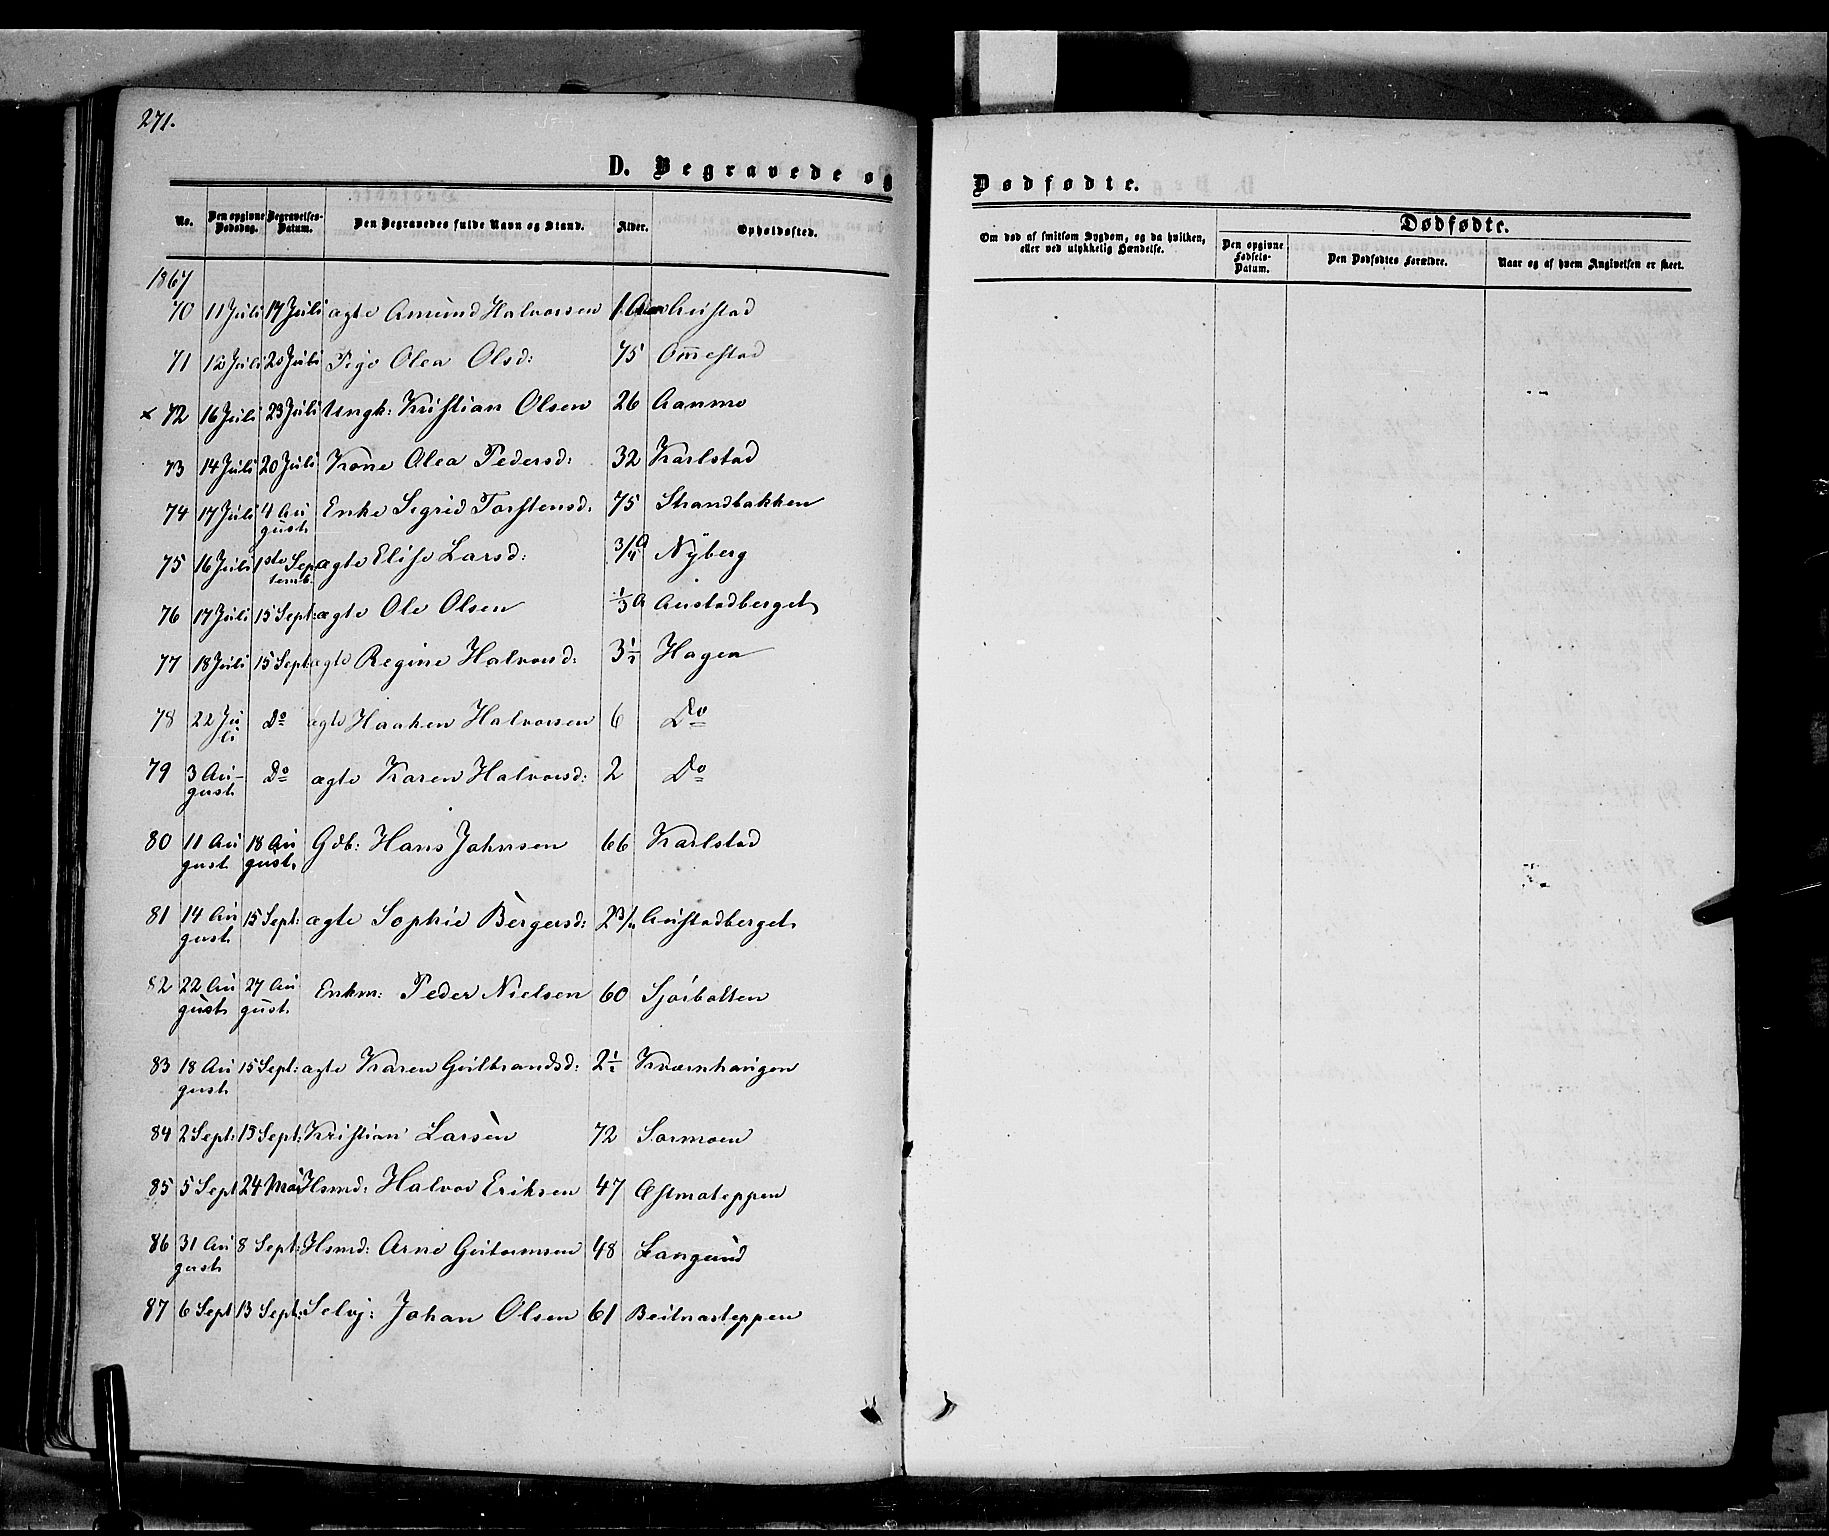 271.
D. Begravede og
Dødfødte.
No. Den opgivne Dødsdag. Begravelses-Datum. Den Begravedes fulde Navn og Stand. Alder. Opholdssted.
Om død af smitsom Sygdom, og da hvilken, eller ved ulykkelig Hændelse.
Dødfødte.
Den opgivne Fødsels-Datum. Den Dødfødtes Forældre. Naar og af hvem Angivelsen er skeet.
1867
70 11 Juli 17 Juli ægte Amund Halvorsen 1 Aar Austad
71 12 Juli 20 Juli Pige Olea Olsd: 75 Om̅estad
x 72 16 Juli 23 Juli Ungk: Kristian Olsen 26 Aanmo
73 14 Juli 20 Juli Kone Olea Pedersd: 32 Karlstad
74 17 Juli 4 August Enke Sigrid Torstensd: 75 Strandbakken
75 16 Juli 1ste Septemb. ægte Elise Larsd: 3/4 A Nyberg
76 17 Juli 15 Sept: ægte Ole Olsen 1/3 A Austadberget
77 18 Juli 15 Sept ægte Regine Halvorsd: 3 1/2 Hagen
78 22 Juli Do ægte Haaken Halvorsen 6 Do
79 3 August Do ægte Karen Halvorsd: 2 Do
80 11 August 18 August Gdb: Hans Johnsen 66 Karlstad
81 14 August 15 Sept: ægte Sophie Bergersd: 2 3/4 Austadberget
82 22 August 27 August Enkm: Peder Nielsen 60 Sjøibolten
83 18 August 15 Sept: ægte Karen Gulbrandsd: 2 1/2 Kværnhaugen
84 2 Sept: 13 Sept: Kristian Larsen 72 Sormoen
85 5 Sept 24 Mai Hsmd: Halvor Eriksen 47 Østmoteppen
86 31 August 8 Sept: Hsmd: Arne Guttormsen 48 Langund
87 6 Sept 13 Sept: Selvj: Johan Olsen 61 Beitnasteppen